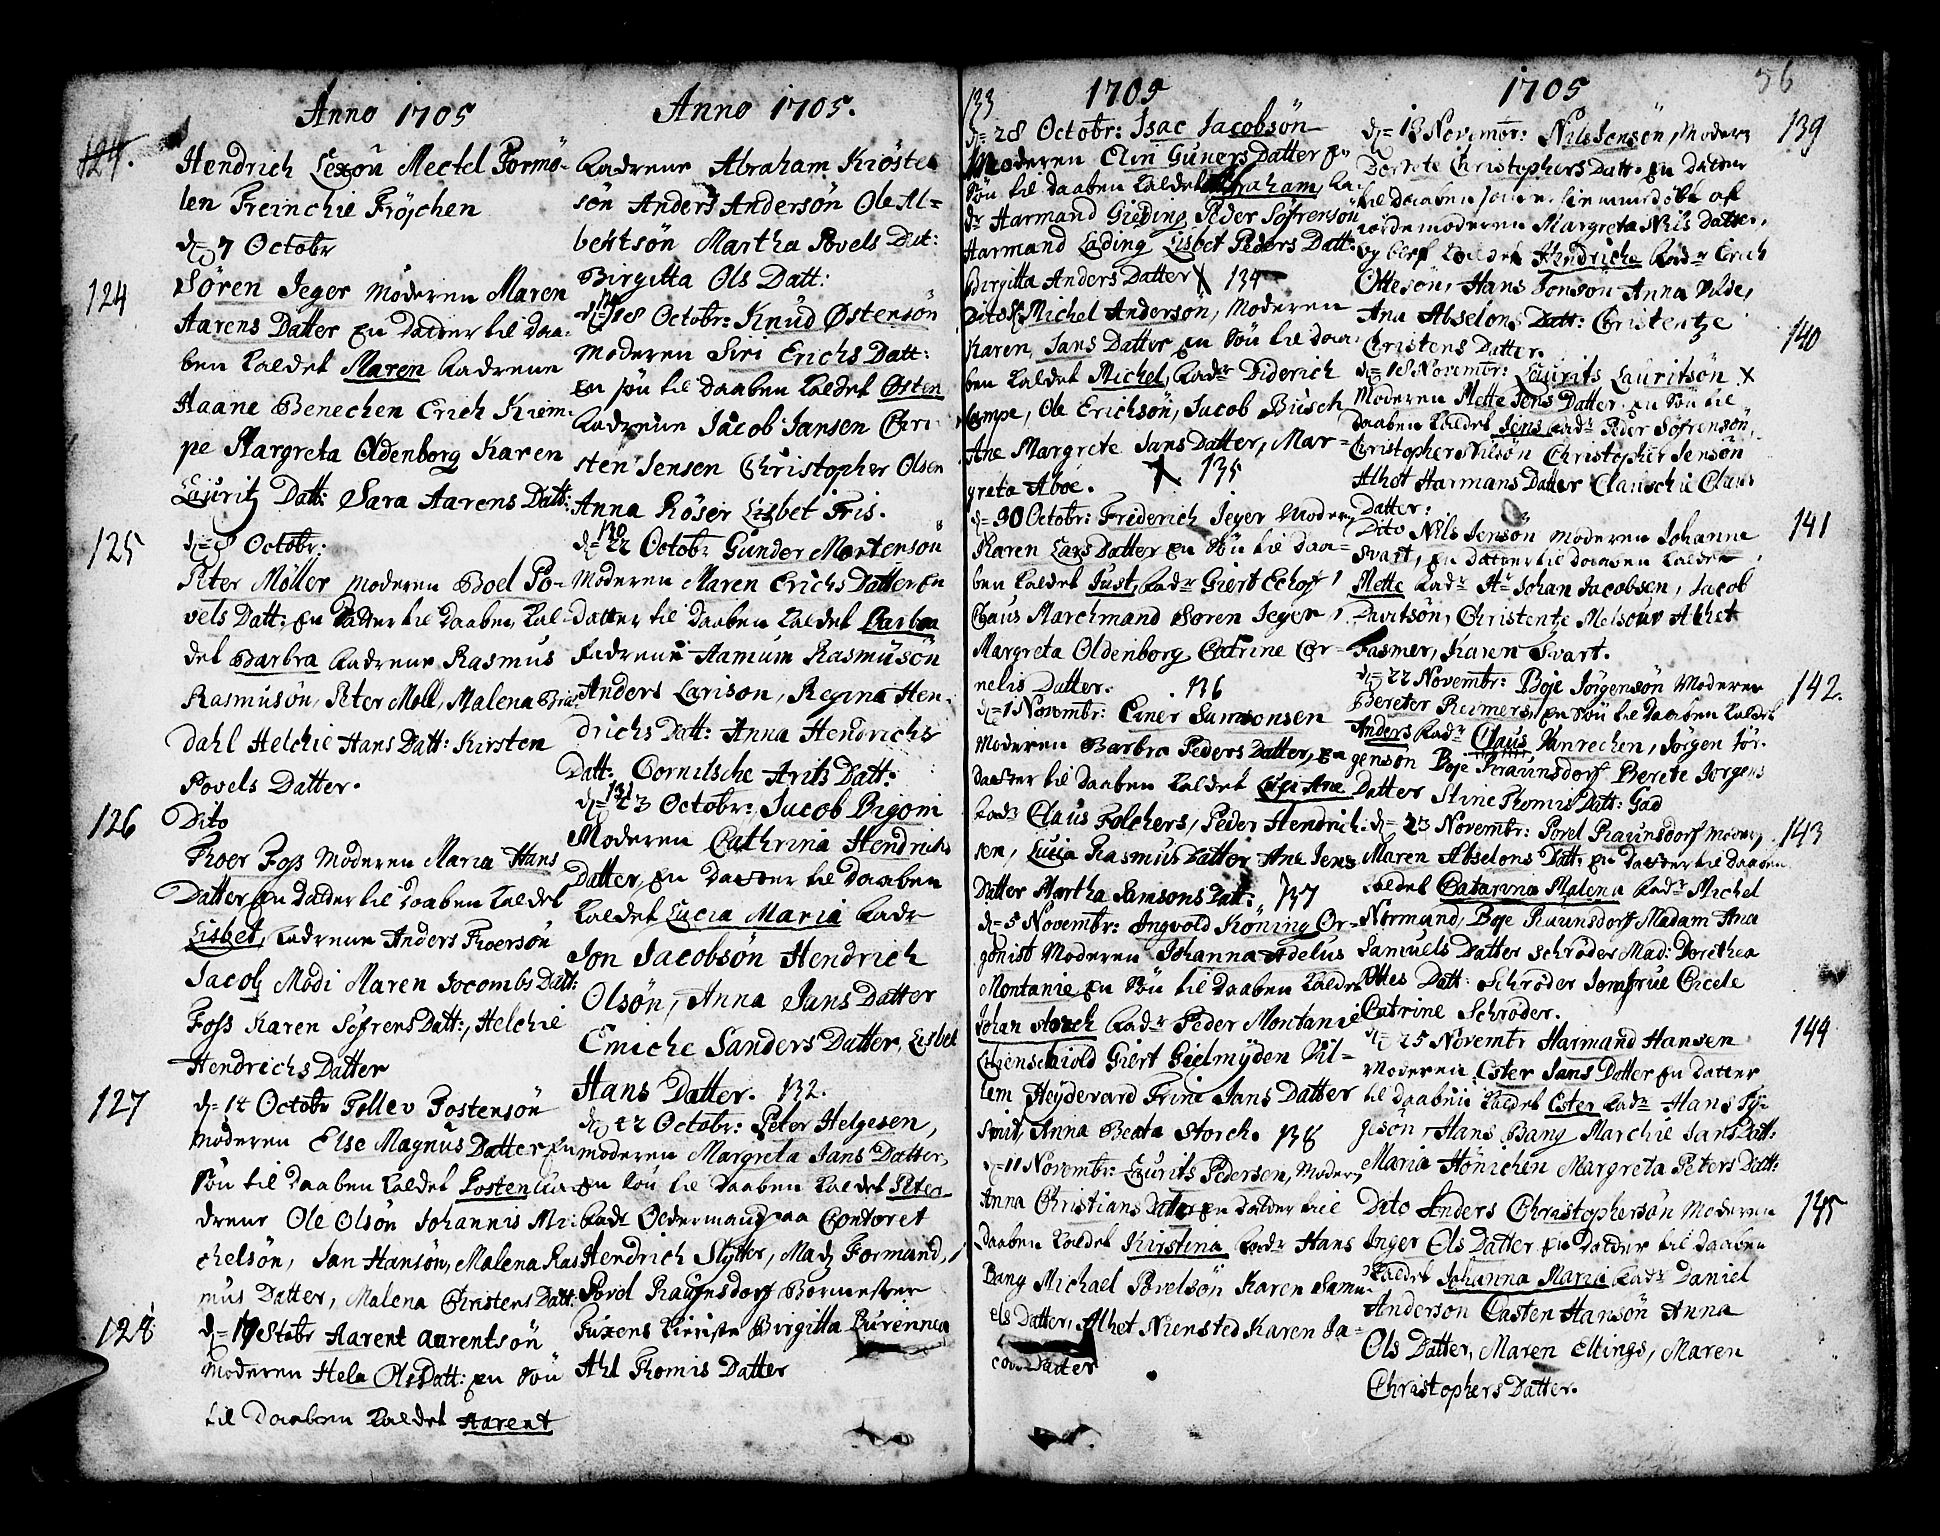 Anno 1705
124.
Hendrich Lexøn Mectel Tormö-
len Treinchie Fröjchen
d= 7 Octobr
124
Søren Jeger Moderen Maren
Aarens Datter en Datter til daa-
ben kaldet Maren Fadrene
Haane Benechen Erich Kiem-
pe Margreta Oldenborg Karen
Lauritz Datt: Sara Aarens Datt:
125
d= 8 Octobr:
Peter Møller moderen Boel Po-
vels Datt: en Datter til daaben kal-
det Barbra Fadrene Rasmus
Rasmusön, Peter Moll, Malena Bre-
dahl Helchie Hans Datt: Kirsten
Povels Datter.
126
Dito
Troer Foss Moderen Maria Hans
Datter en Datter til daaben kaldet
Lisbet, Fadrene Anders Troersön
Jacob Modi Maren Jocombs Datt:
Foss Karen Sofrens Datt:, Helchie
Hendrichs Datter
127
d= 14 Octobr Tollev Tostensön
Moderen Else Magnus Datter En
Sön til daaben kaldet Tosten Fa-
drene Ole Olsön Johannis Mi-
chelsön, Jan Hansön, Malena Ras
mus Datter, Malena Christens Datt:
128
d= 17 8tobr Aarent aarentsön
Moderen Hela Ols Datt: en Sön
til Daaben kaldet Aarent
Anno 1705.
Fadrene Abraham Kiösten
sön Anders Andersön Ole Al-
bertsön Martha Povels Dat:
Birgitta Ols Datt:
d= 18 Octobr: Knud Østensön
Moderen Siri Erichs Datt:
en sön til Daaben kaldet Østen
Fadrene Jacob Jansen Chri-
sten Jensen Christopher Olsen
Anna Röser Lisbet Fris.
130
d= 22 Octobr Gunder Mortensön
Moderen Maren Erichs Datter En
Datter til daaben kaldet Barbra
Fadrene Hamum Rasmusön
Anders Larison, Regina Hen-
drichs Datt: Anna Hendrichs
Datt: Cornitsche Arits Datt:
131
d= 23 Octobr: Jacob Bigom
Moderen Cathrina Hendrichs
Datter, en Datter til Daaben
kaldet Lucia Maria Fadr
Jon Jacobsön Hendrich
Olsön, Anna Jans Datter
Emiche Sanders Datter, Lisbet
Hans Datter. 132.
d= 22 Octobr: Peter Helgesen,
moderen Margreta Jans Datter,
en Sön til Daaben kaldet Peter
Fadr Oldermand paa Contoret
Hendrich Slytter, Madz Formand,
Povel Raunsdorf Bormester
Birgitta Burennea
Ahl Thomis Datter
133
1705
d= 28 Octobr: Isac Jacobsön
Moderen Elin Guners Datter en
Sön til daaben kaldet Abraham, Fa-
dr Harmand Gieding, Peder Sofrensön
Harmand Lading Lisbet Peders Datt:
Birgitta Anders Datter X 134
Dito Michel Andersön, Moderen
Karen Jans Datter en Sön til daa-
ben kaldet Michel, Fadr Diderich
Lampe, Ole Erichsön, Jacob Busch
Ane Margrete Jans Datter, Mar-
greta Aboe. X 135
d= 30 Octobr: Friderich Jeger Modern
Karen Lars Datter en Sön til daa-
ben kaldet Just, Fadr Giert Echof,
Claus Marchmand Soren Jeger,
Margreta Oldenborg Catrine Cor-
nelis Datter. 136
d= 1 Novembr: Einer Samsonsen
Moderen Barbra Peders Datter, en
datter til daaben kaldet Ane
Fadr Claus Folchers, Peder Hendrich-
sen, Lucia Rasmus Datter Ane Jens
Datter Martha Samsons Datt: 137
d= 5 Novembr: Ingvold Köning Or-
gonist Moderen Johanna Adelus
Montanie en Sön til daaben kaldet
Johan Storch Fadr Peder Montanie
Lilienschiold Giert Gielmyden Vil-
lem Heydevard Trine Jans Datter
Smit, Anna Beata Storch. 138
d= 11 Novembr: Laurits Pedersen, Moder,
Anna Christians Datter en datter til
daaben kaldet Kirstina Fadr Hans
Bang Michael Povelsön Karen Samu-
els Datter, Alhet Niensted Karen Ja-
cobs Datter
1705
56
139
d= 13 Novembr: Nils Jensön, Modern
Dorrete Christophers Datt. en datter
til daaben som er hiemmedöbt af
iordemoderen Margreta Nils Datter,
og blef kaldet Hendricha Fadr Erich
Ottesön, Hans Tonsön Anna Vlde,
Ana Abselons Datt: Christentze
Christens Datter.
140
d= 18 Novembr: Laurits Lauritsön X
Moderen Mette Jens Datter en Sön til
daaben kaldet Jens Fadr Peder Sofrensön,
Christopher Nilsön Christopher Jensön
Alhet Harmans Datter Clauschie Claus
Datter:
141
Dito Nils Jensön moderen Johanne
Svart, en Datter til daaben kaldet
Mette Fadr Hr Johan Jacobsen, Jacob
Davitsön, Christentze Melsour Alhet
Fasmer, Karen Svart.
142.
d= 22 Novembr: Boje Jörgensön Moderen
Bereter Reimers, en Sön til daaben kaldet
Anders Fadr Claus Vanrechen, Jörgen Jör-
gensön Boje Praunsdorf Berete Jorgens
Datter Stine Thomis Datt: Gad
143
d= 23 Novembr: Povel Raunsdorf moder,
Maren Abselons Datt: en Datter til daaben
kaldet Catarina Malena Fadr Michel
Normand, Boje Raunsdorf Madam Ana
Samuels Datter Schröder Mad: Dorothea
Ottes Datt: Schröder Jomfrue Cicele
Catrine Schröder.
144
d= 25 Novembr Harmand Hansen
Moderen Ester Jans Datter en Datter
til daaben kaldet Ester Fadr Hans Ty-
gesön, Hans Bang Marchie Jans Datt:
Maria Hönichen Margreta Peters Datt:
145
Dito Anders Christophersön Moderen
Inger Ols Datter en Datter til daaben
kaldet Johanna Maria Fadr Daniel
Anderson Casten Hansön Anna
Ols Datter, Maren Ellings, Maren
Christophers Datter.